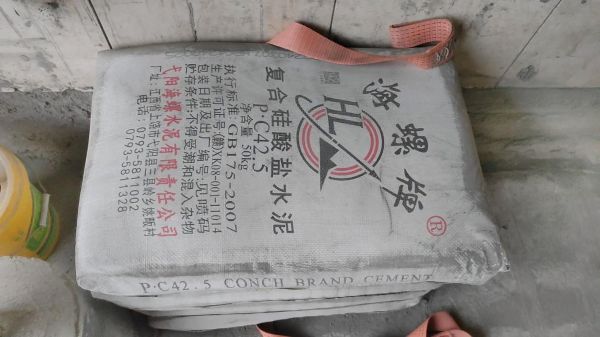 海螺牌®
HL
复合硅酸盐水泥
P·C42.5
净含量 50kg
执行标准:GB175-2007
生产许可证号:(赣)XK08-001-11014
包装日期及出厂编号:见喷码
贮存条件:不得受潮和混入杂物
弋阳海螺水泥有限责任公司
厂址:江西省上饶市弋阳县三县岭乡姚畈村
电话:0793-5811002
0793-5811328
P·C42.5 CONCH BRAND CEMENT